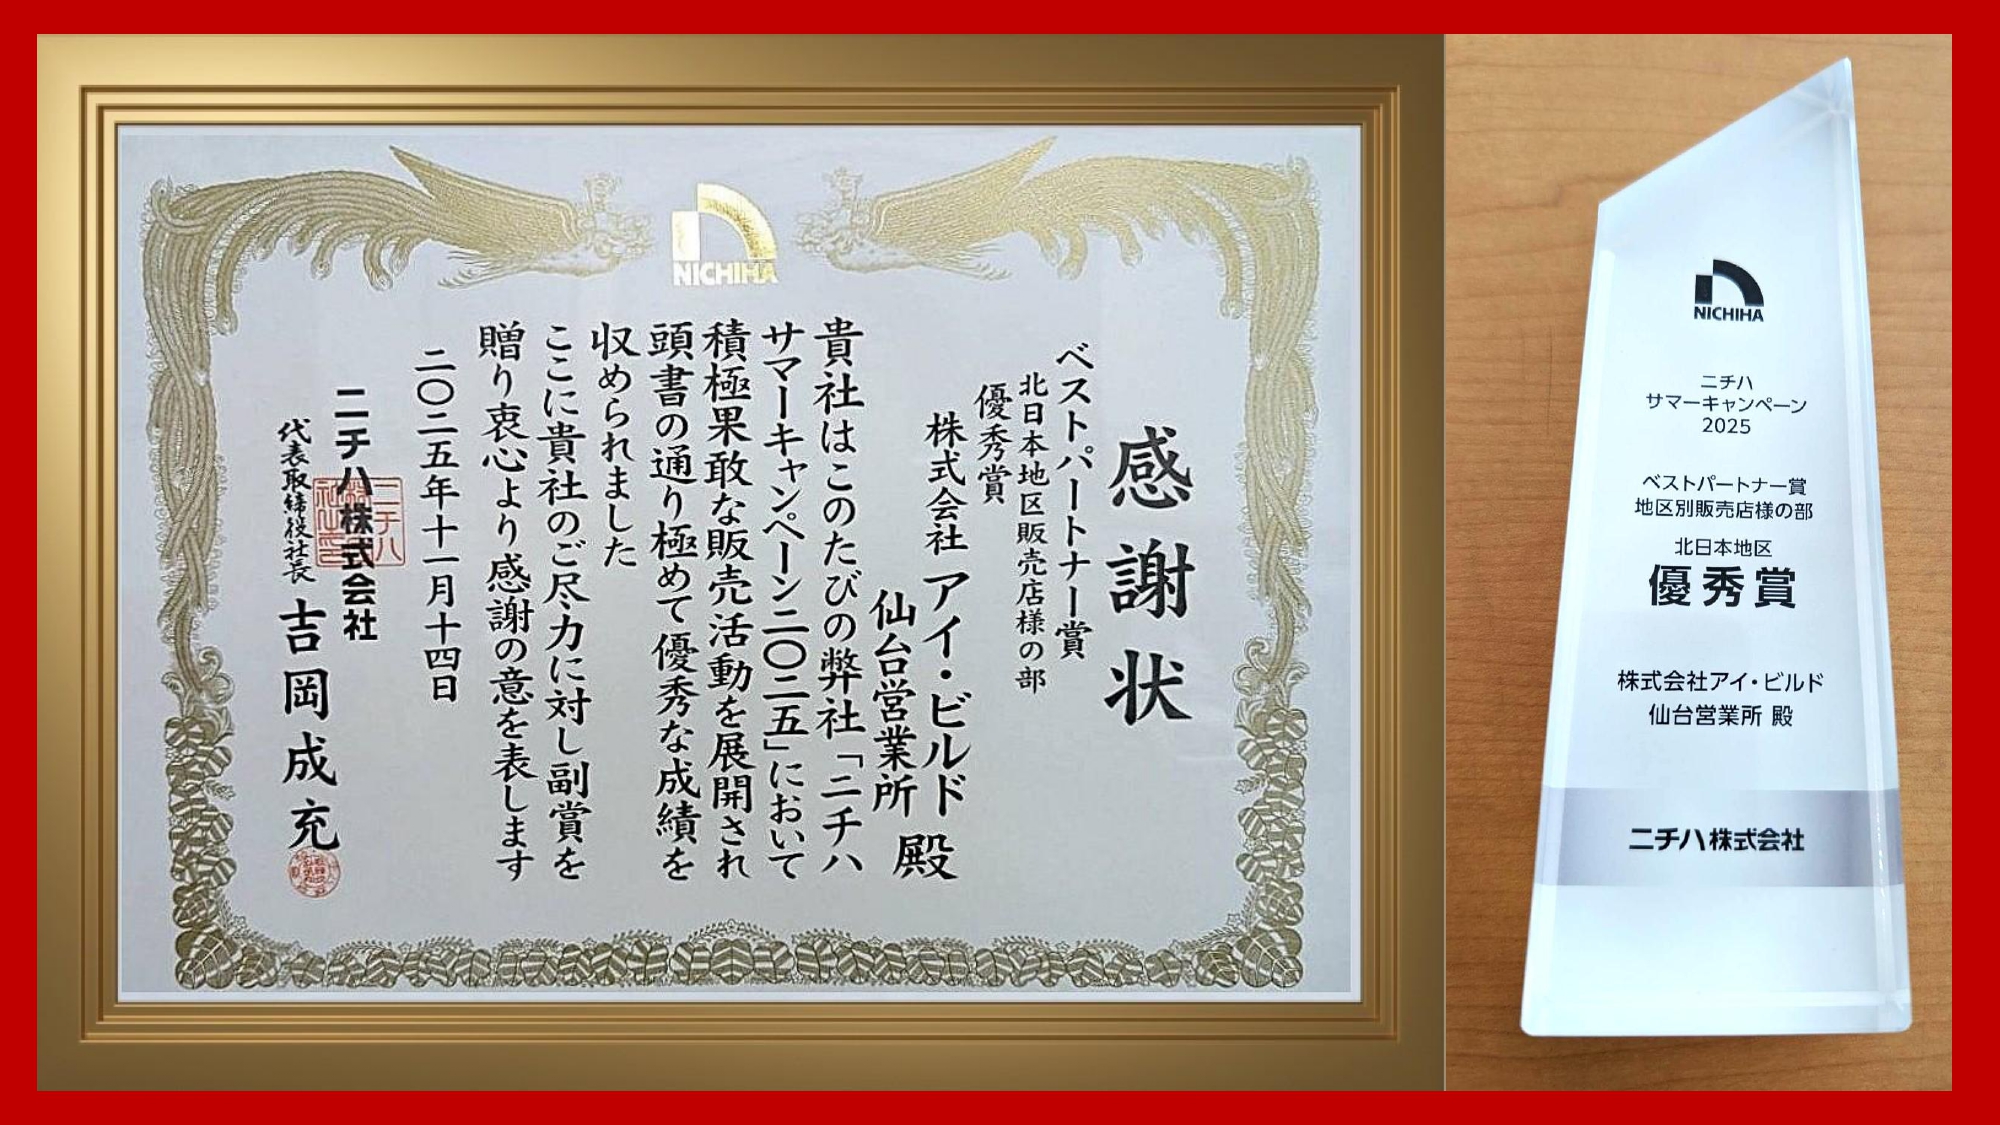 NICHIHA
感謝状
ベストパートナー賞
北日本地区販売店様の部
優秀賞
株式会社 アイ・ビルド
仙台営業所 殿
貴社はこのたびの弊社「ニチハ
サマーキャンペーン二〇二五」において
積極果敢な販売活動を展開され
頭書の通り極めて優秀な成績を
収められました
ここに貴社のご尽力に対し副賞を
贈り衷心より感謝の意を表します
二〇二五年十一月十四日
ニチハ株式会社
代表取締役社長 吉岡成充
NICHIHA
ニチハ
サマーキャンペーン
2025
ベストパートナー賞
地区別販売店様の部
北日本地区
優秀賞
株式会社アイ・ビルド
仙台営業所 殿
ニチハ株式会社